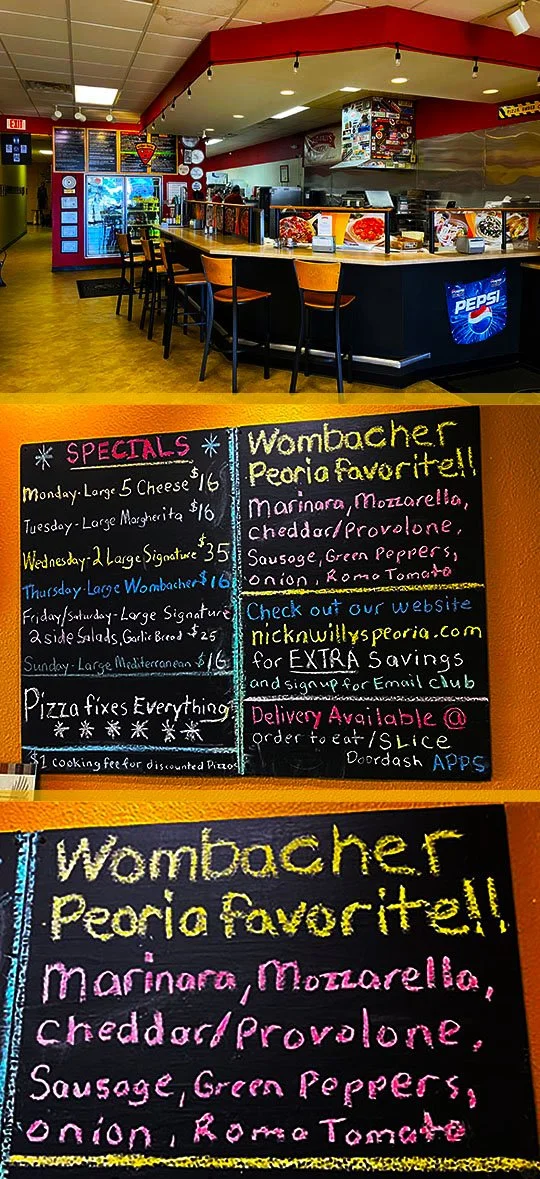 EXIT
PEPSI
SPECIALS
Monday-Large 5 Cheese $16
Tuesday-Large Margherita $16
Wednesday-2 Large Signature $35
Thursday-Large Wombacher $16
Friday/Saturday-Large Signature
2 side Salads, Garlic Bread $25
Sunday-Large Mediterranean $16
Pizza fixes Everything
$1 cooking fee for discounted Pizzas
Wombacher
Peoria favorite!!
Marinara, Mozzarella,
Cheddar/Provolone,
Sausage, Green Peppers,
onion, Roma Tomato
Check out our website
nicknwillyspeoria.com
for EXTRA Savings
and signup for Email club
Delivery Available @
order to eat/SLice
Doordash APPS
Wombacher
Peoria favorite!!
Marinara, Mozzarella,
Cheddar/Provolone,
Sausage, Green Peppers,
onion, Roma Tomato